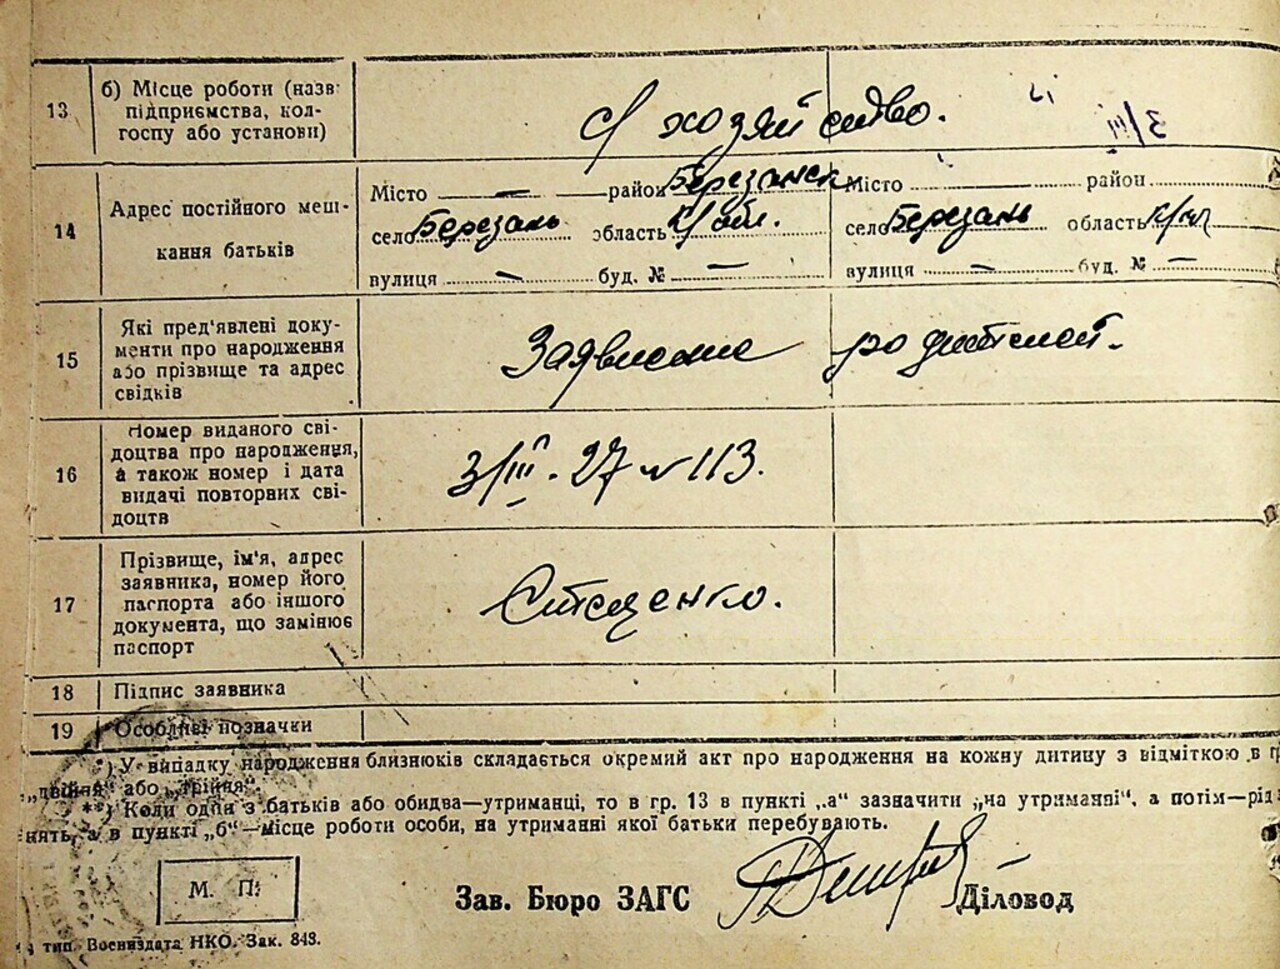 13
б) Місце роботи (назв
підприємства, кол-
госпу або установи)
с/ хозяйство.
3/III
14
Адрес постійного меш-
кання батьків
Місто — район Березанск
село Березань область К/обл.
вулиця — буд. № —
Місто район
село Березань область
вулиця — буд. № —
15
Які пред'явлені доку-
менти про народження
або прізвище та адрес
свідків
Заявление родителей.
16
Номер виданого сві-
доцтва про народження,
а також номер і дата
видачі повторних сві-
доцтв
3/III. 27 № 113.
17
Прізвище, ім'я, адрес
заявника, номер його
паспорта або іншого
документа, що замінює
паспорт
Стаценко.
18
Підпис заявника
19
Особливі позначки
*) У випадку народження близнюків складається окремий акт про народження на кожну дитину з відміткою в г
„двійня" або „трійня".
**) Коли один з батьків або обидва—утриманці, то в гр. 13 в пункті „а" зазначити „на утриманні", а потім—рід
нять, а в пункті „б"—місце роботи особи, на утриманні якої батьки перебувають.
М. П.
Зав. Бюро ЗАГС
Діловод
тип. Воениздата НКО. Зак. 843.